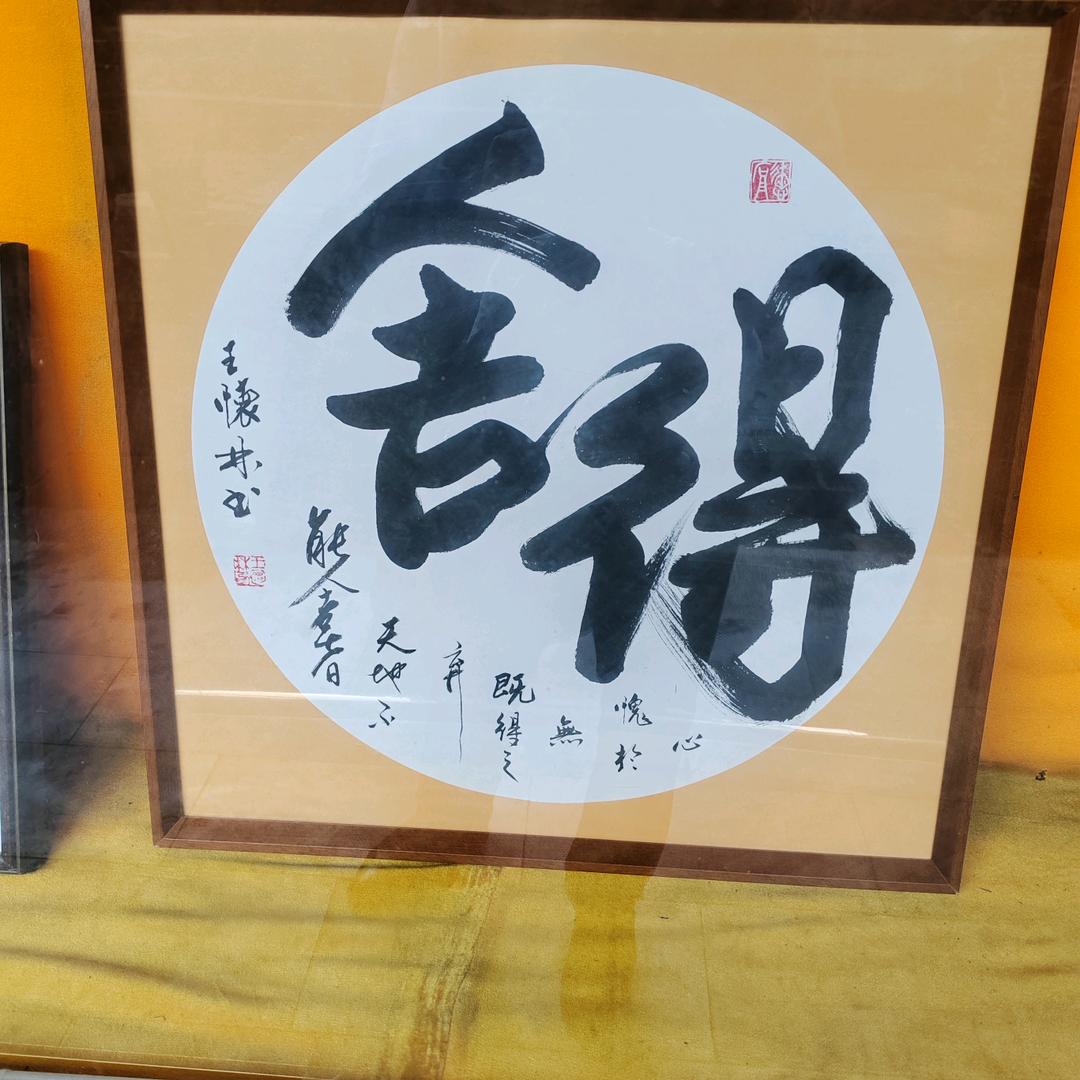 舍得
能舍者
天地不
弃
既得之
無
愧於
心
王懷林书